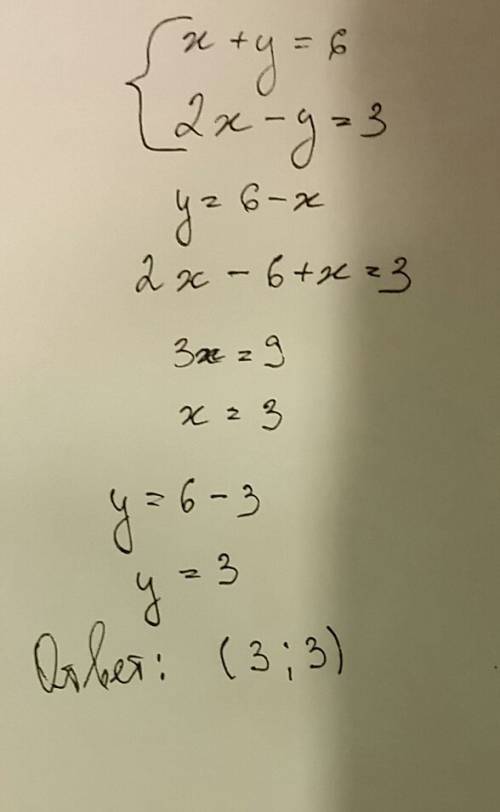 x + y = 6
2x - y = 3
y = 6 - x
2x - 6 + x = 3
3x = 9
x = 3
y = 6 - 3
y = 3
Ответ: (3 ; 3)